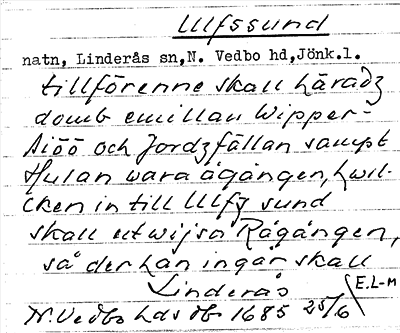 Ulfssund
natn, Linderås sn,N. Vedbo hd,Jönk.l.
tillförenne skall häradz
domb emillan Wipper-
Siöö och Jordzfällan sampt
Hulan wara ågången, hwil-
cken in till Ulfz sund
skall utwijsa Rågången,
så der han ingår skall
Linderås E.L-M
N. Vedbo hds db 1685 25/6